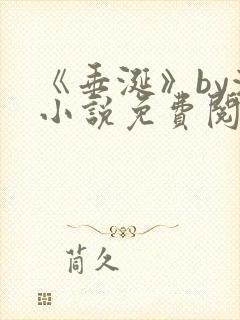 《垂涎》by
小說免費閱
茼久